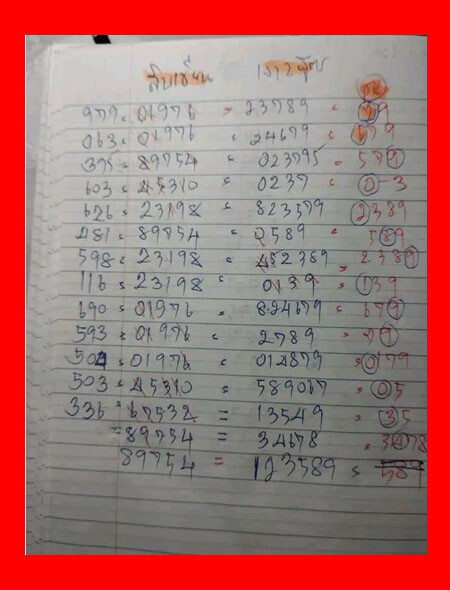 979 = 01976 = 23789 = 79
063 = 01976 = 24679 = 679
375 = 89754 = 023795 = 579
603 = 45310 = 0237 = 0-3
626 = 23198 = 823579 = 2389
281 = 89754 = 0589 = 589
598 = 23198 = 452389 = 2389
116 = 23198 = 0139 = 139
690 = 01976 = 824679 = 679
593 = 01976 = 2789 = 79
504 = 01976 = 014879 = 0179
503 = 45310 = 589067 = 05
336 = 67532 = 13549 = 35
= 89754 = 34678 = 3478
89754 = 123589 = 589